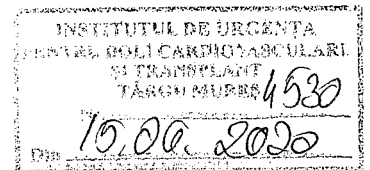 INSTITUTUL DE URGENŢA
PENTRU BOLI CARDIOVASCULARE
ŞI TRANSPLANT
TÂRGU MUREŞ
4530
Din 15.06. 2020